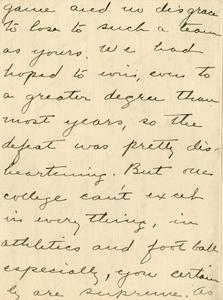 game and no disgrace
to lose to such a team
as yours. We had
hoped to win, even to
a greater degree than
most years, so the
defeat was pretty dis-
heartening. But one
college can't excel
in everything, in
athletics and foot ball
especially, you certain
ly are supreme. As